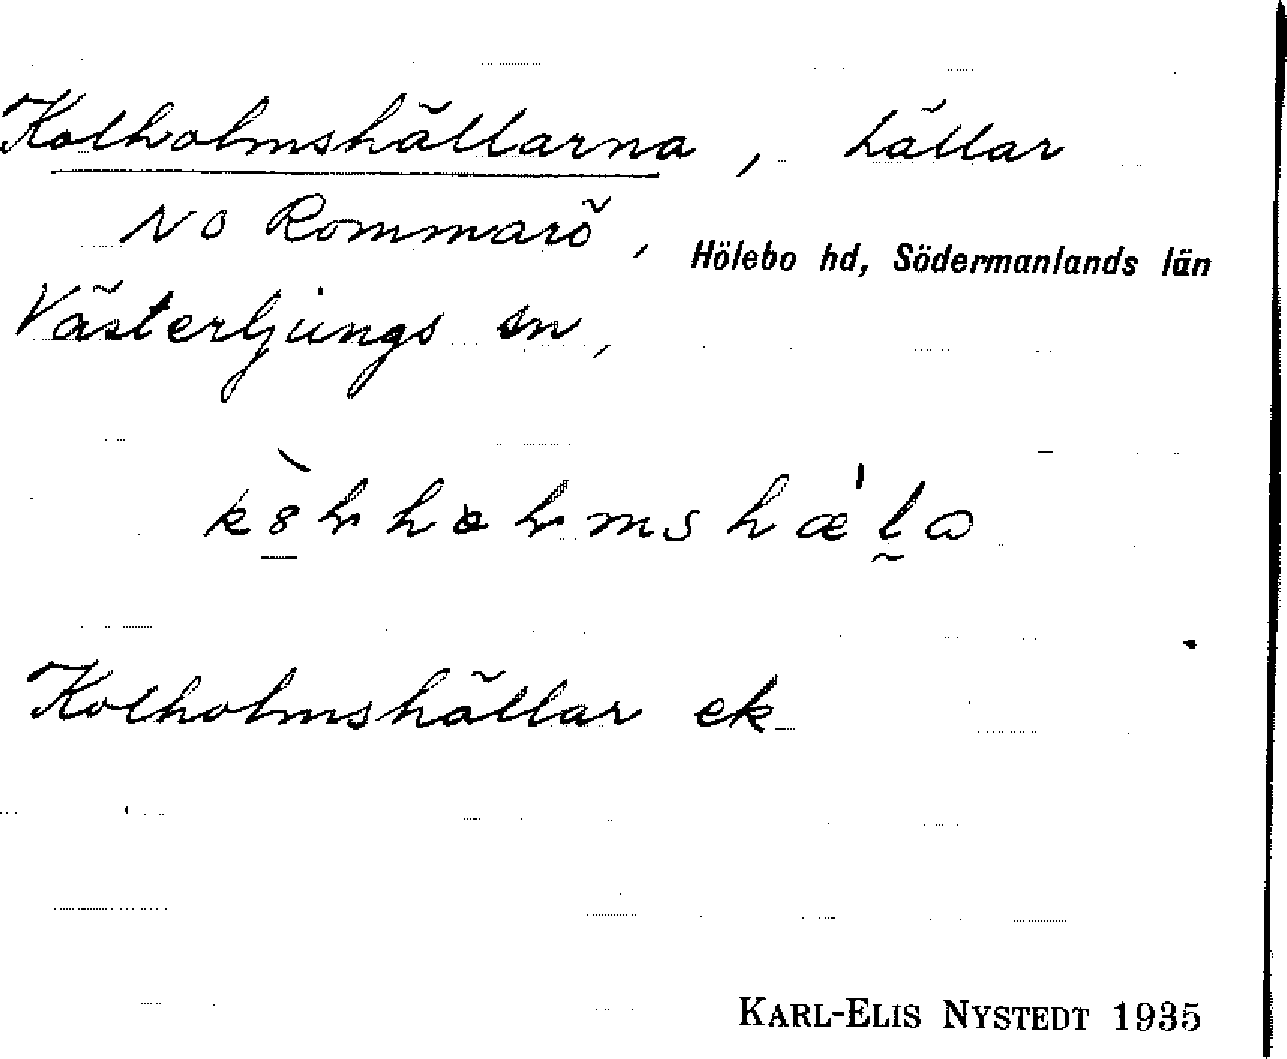 Kolholmshällarna, hällar
NO Rommarö,
Hölebo hd, Södermanlands län
Västerljungs sn,
Kolholmshällar ek
KARL-ELIS NYSTEDT 1935